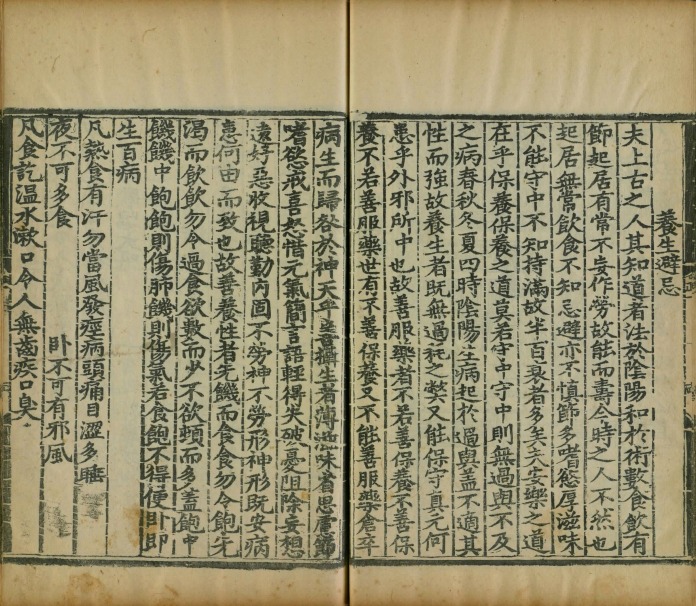 養生避忌
夫上古之人其知道者法於陰陽和於術數食飲有
節起居有常不妄作勞故能而壽今時之人不然也
起居無常飲食不知忌避亦不慎節多嗜慾厚滋味
不能守中不知持滿故半百衰者多矣夫安樂之道
在乎保養保養之道莫若守中守中則無過與不及
之病春秋冬夏四時陰陽生病起於過與盖不適其
性而強故養生者既無過耗之獘又能保守真元何
患乎外邪所中也故善服藥者不若善保養不善保
養不若善服藥世有不善保養又不能善服藥倉卒
病生而歸咎於神天乎善攝生者薄滋味省思慮節
嗜慾戒喜怒惜元氣簡言語輕得失破憂阻除妄想
遠好惡收視聽勤內固不勞神不勞形神形既安病
患何由而致也故善養性者先饑而食食勿令飽先
渴而飲飲勿令過食欲數而少不欲頓而多盖飽中
饑饑中飽飽則傷肺饑則傷氣若食飽不得便卧即
生百病
凡熱食有汗勿當風發痙病頭痛目澀多睡
夜不可多食
卧不可有邪風
凡食訖温水漱口令人無齒疾口臭